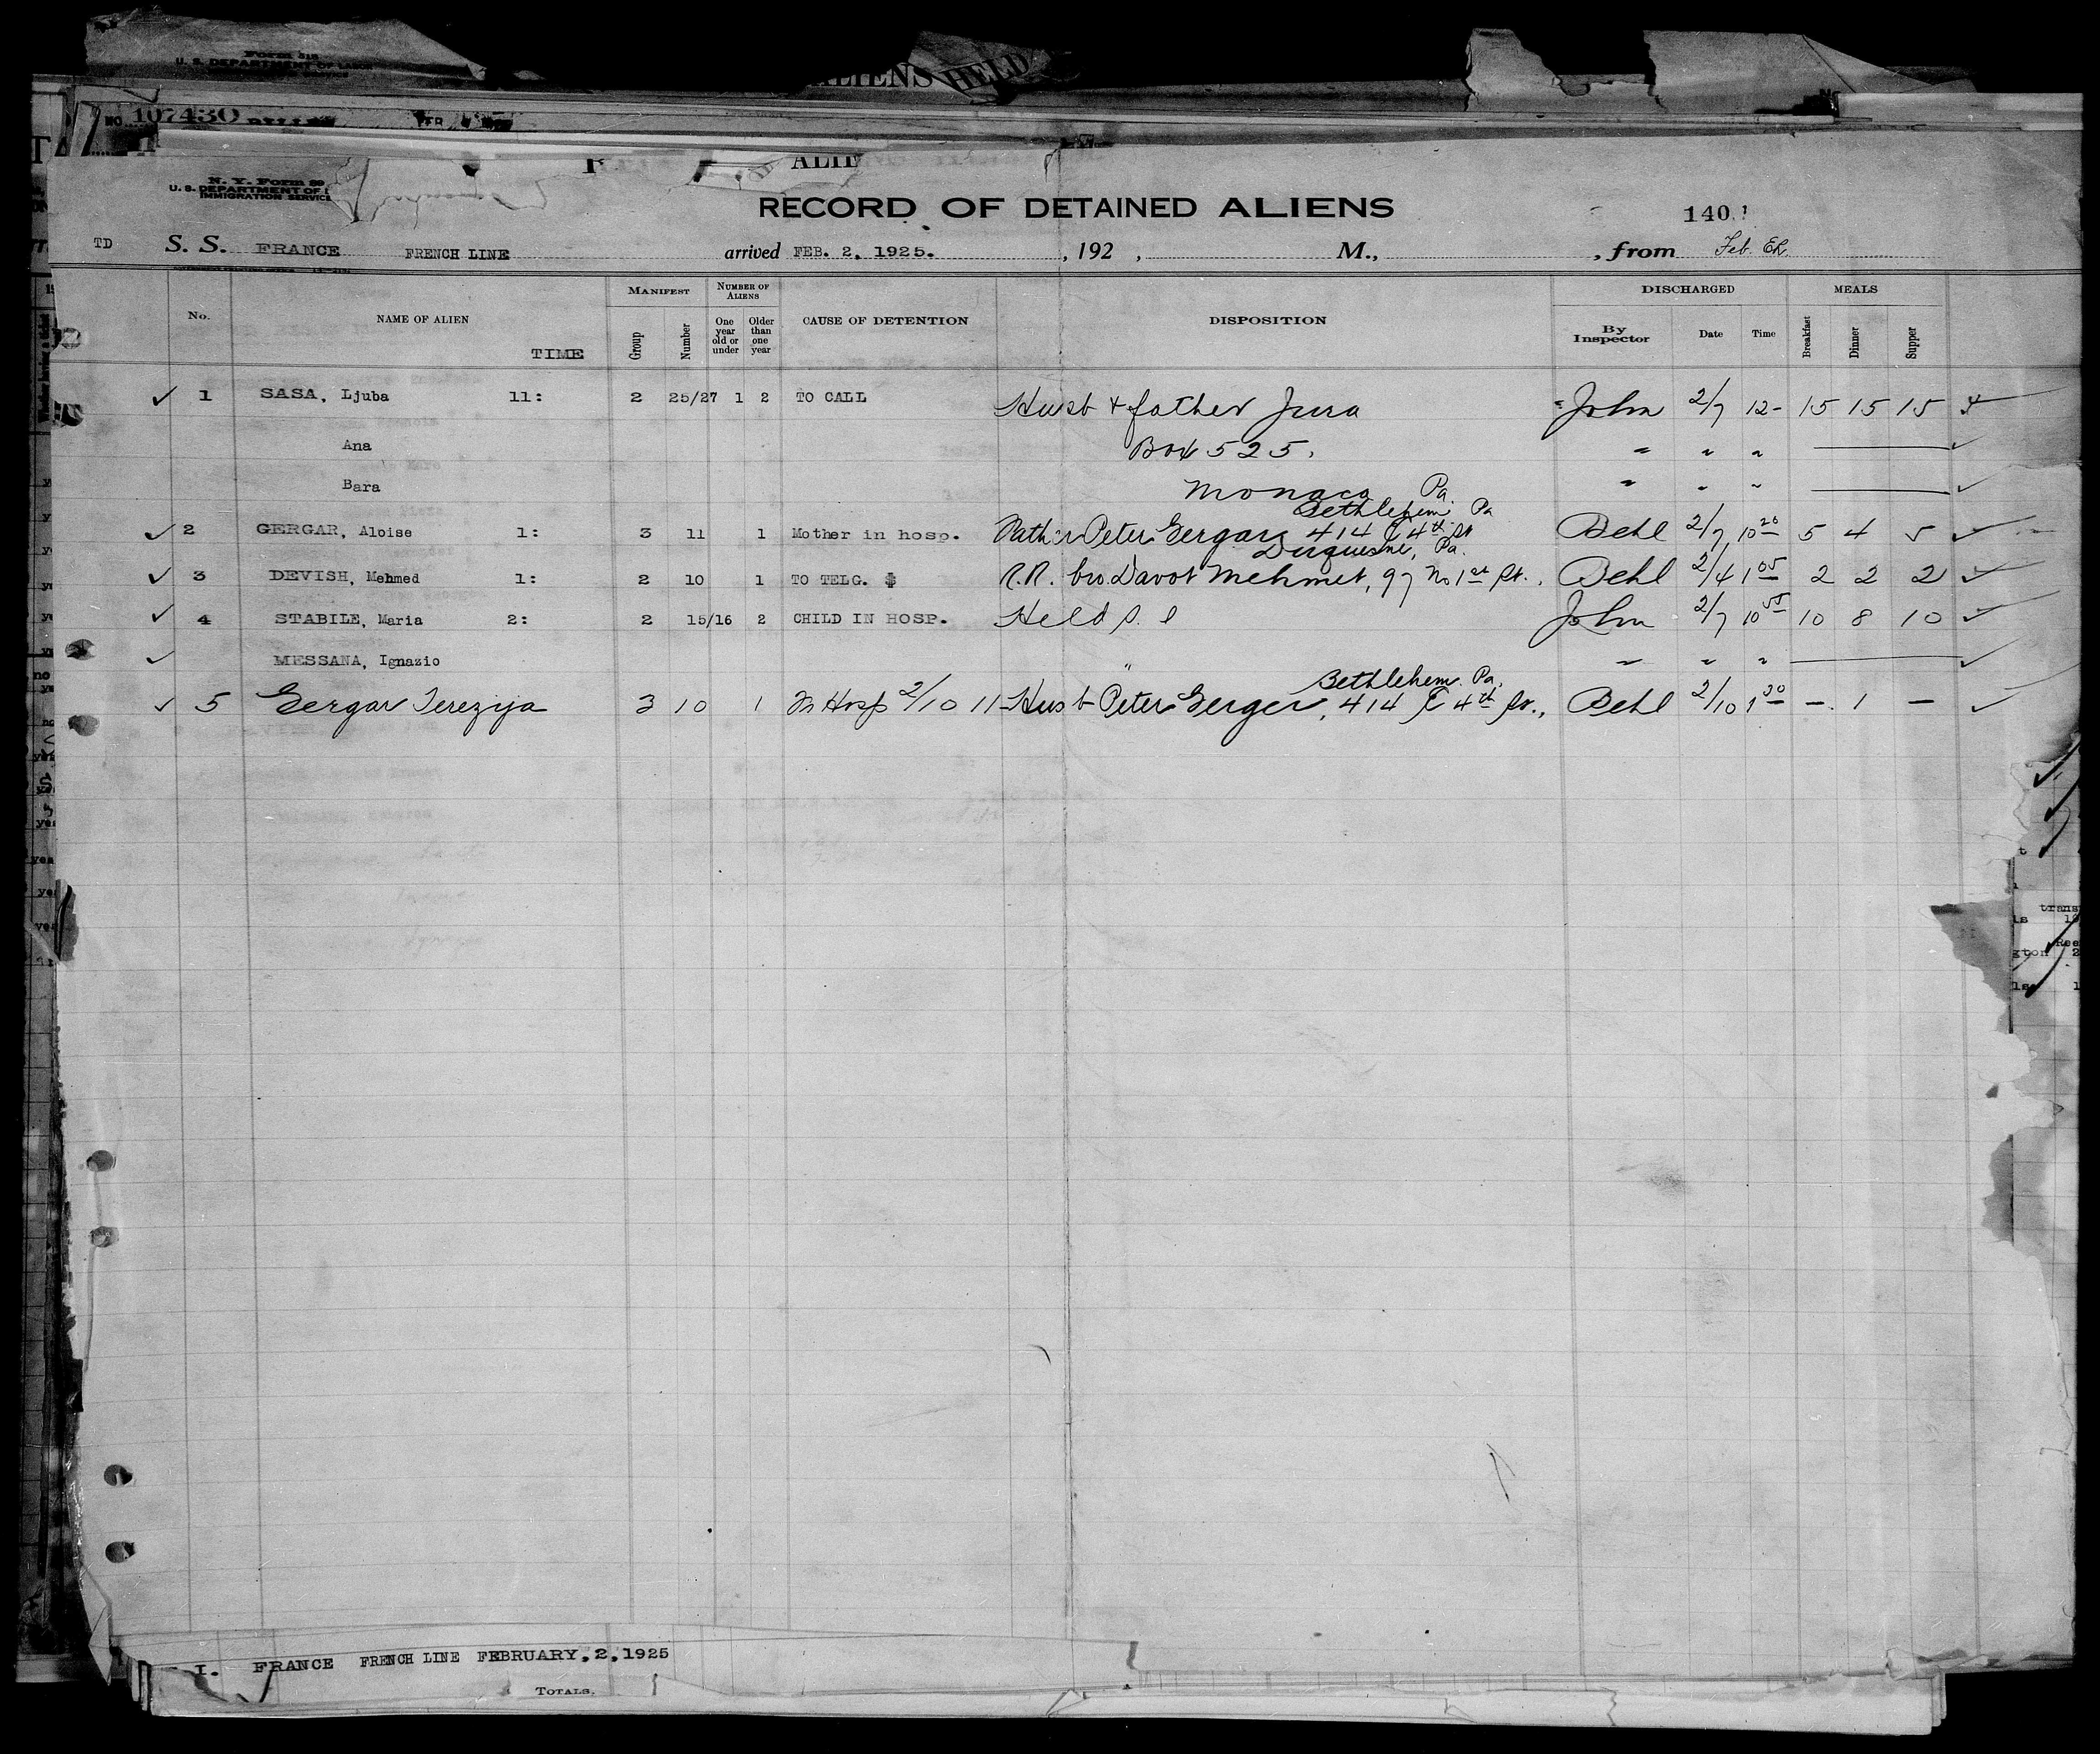 Form 518
U. S. DEPARTMENT OF LABOR
ALIENS HELD
NO. 107430
ALIE
N. Y. Form 89
U. S. DEPARTMENT OF L
IMMIGRATION SERVICE
RECORD OF DETAINED ALIENS
140
TD S. S. FRANCE FRENCH LINE arrived FEB. 2, 1925. , 192 , M., , from Feb.
No. NAME OF ALIEN TIME MANIFEST Group Number NUMBER OF ALIENS One year old or under Older than one year CAUSE OF DETENTION DISPOSITION DISCHARGED By Inspector Date Time MEALS Breakfast Dinner Supper
✓ 1 SASA, Ljuba 11: 2 25/27 1 2 TO CALL Husb + father Jura John 2/7 12- 15 15 15
Ana Box 525. " " " ✓
Bara Monaca Pa. " " " ✓
Bethlehem Pa
✓ 2 GERGAR, Aloise 1: 3 11 1 Mother in hosp. Father Peter Gergar 414 E 4th St Behl 2/7 10 20 5 4 5 ✓
Duquesne, Pa.
✓ 3 DEVISH, Mehmed 1: 2 10 1 TO TELG. $ R.R. bro Davot Mehmet, 97 No 1st St., Behl 2/4 1 05 2 2 2 ✓
✓ 4 STABILE, Maria 2: 2 15/16 2 CHILD IN HOSP. Held S. I John 2/7 10 55 10 8 10 ✓
✓ MESSANA, Ignazio " " " " ✓
Bethlehem Pa.
✓ 5 Gergar Terezija 3 10 1 In Hosp 2/10 11- Husb Peter Gerger, 414 E 4th St., Behl 2/10 1 20 - 1 - ✓
I. FRANCE FRENCH LINE FEBRUARY, 2, 1925
TOTALS.